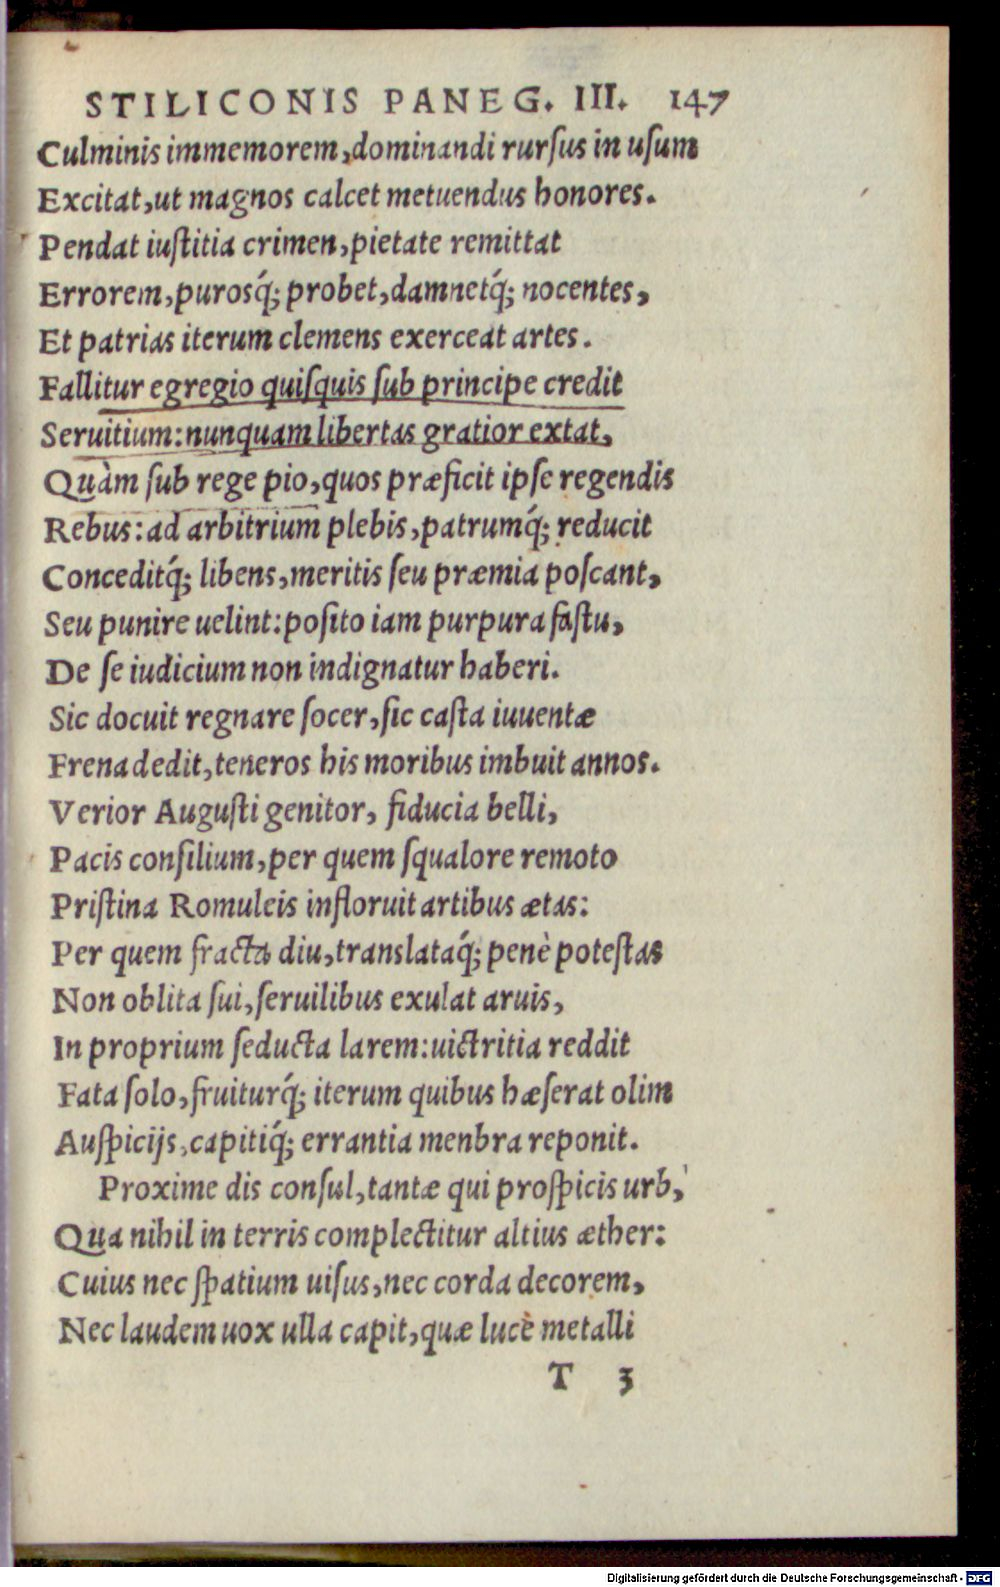 STILICONIS PANEG. III. 147
Culminis immemorem, dominandi rurſus in uſum
Excitat, ut magnos calcet metuendus honores.
Pendat iuſtitia crimen, pietate remittat
Errorem, purosq́; probet, damnetq́; nocentes,
Et patrias iterum clemens exerceat artes.
Fallitur egregio quiſquis ſub principe credit
Seruitium: nunquam libertas gratior extat,
Quàm ſub rege pio, quos præficit ipſe regendis
Rebus: ad arbitrium plebis, patrumq́; reducit
Conceditq́; libens, meritis ſeu præmia poſcant,
Seu punire uelint: poſito iam purpura faſtu,
De ſe iudicium non indignatur haberi.
Sic docuit regnare ſocer, ſic caſta iuuentæ
Frena dedit, teneros his moribus imbuit annos.
Verior Auguſti genitor, fiducia belli,
Pacis conſilium, per quem ſqualore remoto
Priſtina Romuleis infloruit artibus ætas:
Per quem fracta diu, translataq́; penè poteſtas
Non oblita ſui, ſeruilibus exulat aruis,
In proprium ſeducta larem: uictritia reddit
Fata ſolo, fruiturq́; iterum quibus hæſerat olim
Auſpicijs, capitiq́; errantia menbra reponit.
Proxime dis conſul, tantæ qui proſpicis urb,
Qua nihil in terris complectitur altius æther:
Cuius nec ſpatium uiſus, nec corda decorem,
Nec laudem uox ulla capit, quæ lucè metalli
T 3
Digitalisierung gefördert durch die Deutsche Forschungsgemeinschaft - DFG